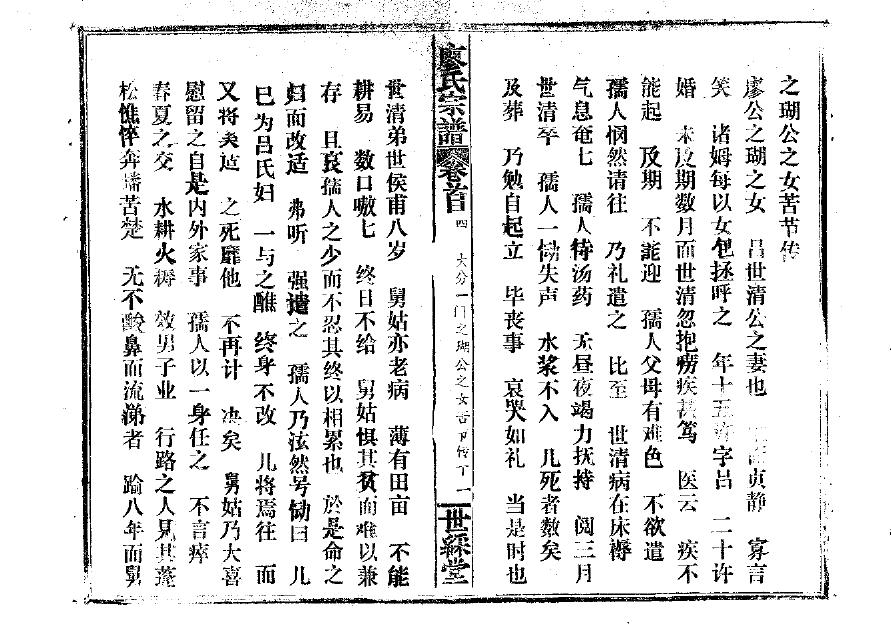 之瑚公之女苦节传
廖公之瑚之女 吕世清公之妻也 贞静 寡言
笑 诸姆每以女包拯呼之 年十五许字吕 二十许
婚 未及期数月而世清忽抱痨疾甚笃 医云 疾不
能起 及期 不能迎 孺人父母有难色 不欲遣
孺人悯然请往 乃礼遣之 比至 世清病在床褥
气息奄七 孺人侍汤药 无昼夜竭力抚持 阅三月
世清卒 孺人一恸失声 水浆不入 几死者数矣
及葬 乃勉自起立 毕丧事 哀哭如礼 当是时也
廖氏宗譜 卷首 四 大分一门之瑚公之女苦节传 一 世綵堂
世清弟世侯甫八岁 舅姑亦老病 薄有田亩 不能
耕易 数口嗷七 终日不给 舅姑惧其贫而难以兼
存 且哀孺人之少而不忍其终以相累也 於是命之
归而改适 弗听 强遣之 孺人乃泫然号恸曰 儿
已为吕氏妇 一与之醮 终身不改 儿将焉往 而
又将矣适 之死靡他 不再计 决矣 舅姑乃大喜
慰留之自是内外家事 孺人以一身任之 不言瘁
春夏之交 水耕火耨 效男子业 行路之人见其蓬
松憔悴奔墙苦楚 无不酸鼻而流涕者 踰八年而舅